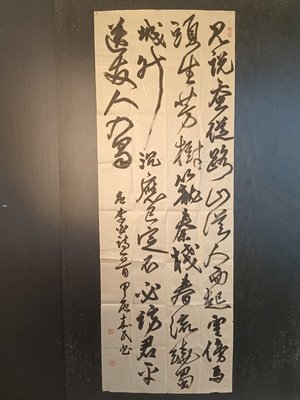 見説蚕從路山從人面起雲傍馬
頭生芳樹籠秦棧春流繞蜀
城升沉應已定不必訪君平
送友人入蜀
李白詩一首甲辰 民書